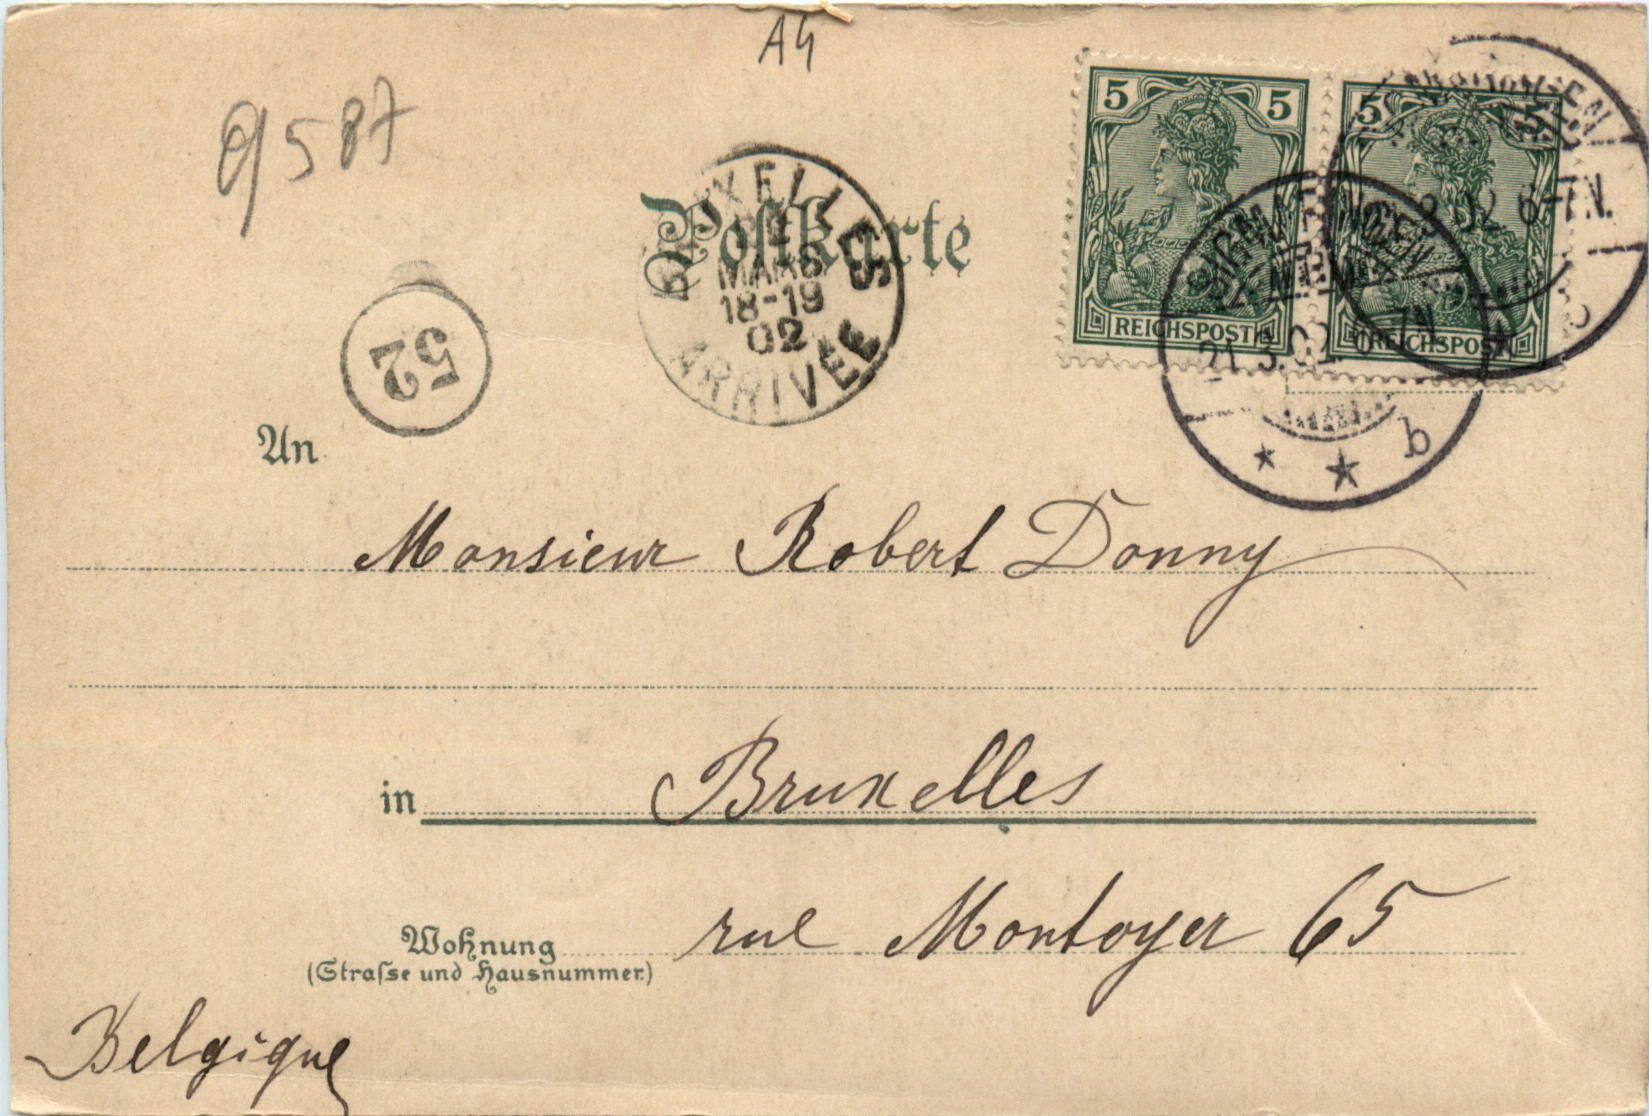 A4
9587
5 5
5 5
REICHSPOST
REICHSPOST
SIGMARINGEN
21.3.02. 6-7N.
* * b
Postkarte
BRUXELLES
MARS
18-19
02
ARRIVÉE
52
An
Monsieur Robert Donny
in Bruxelles
Wohnung rue Montoyer 65
(Straſse und Hausnummer.)
Belgique